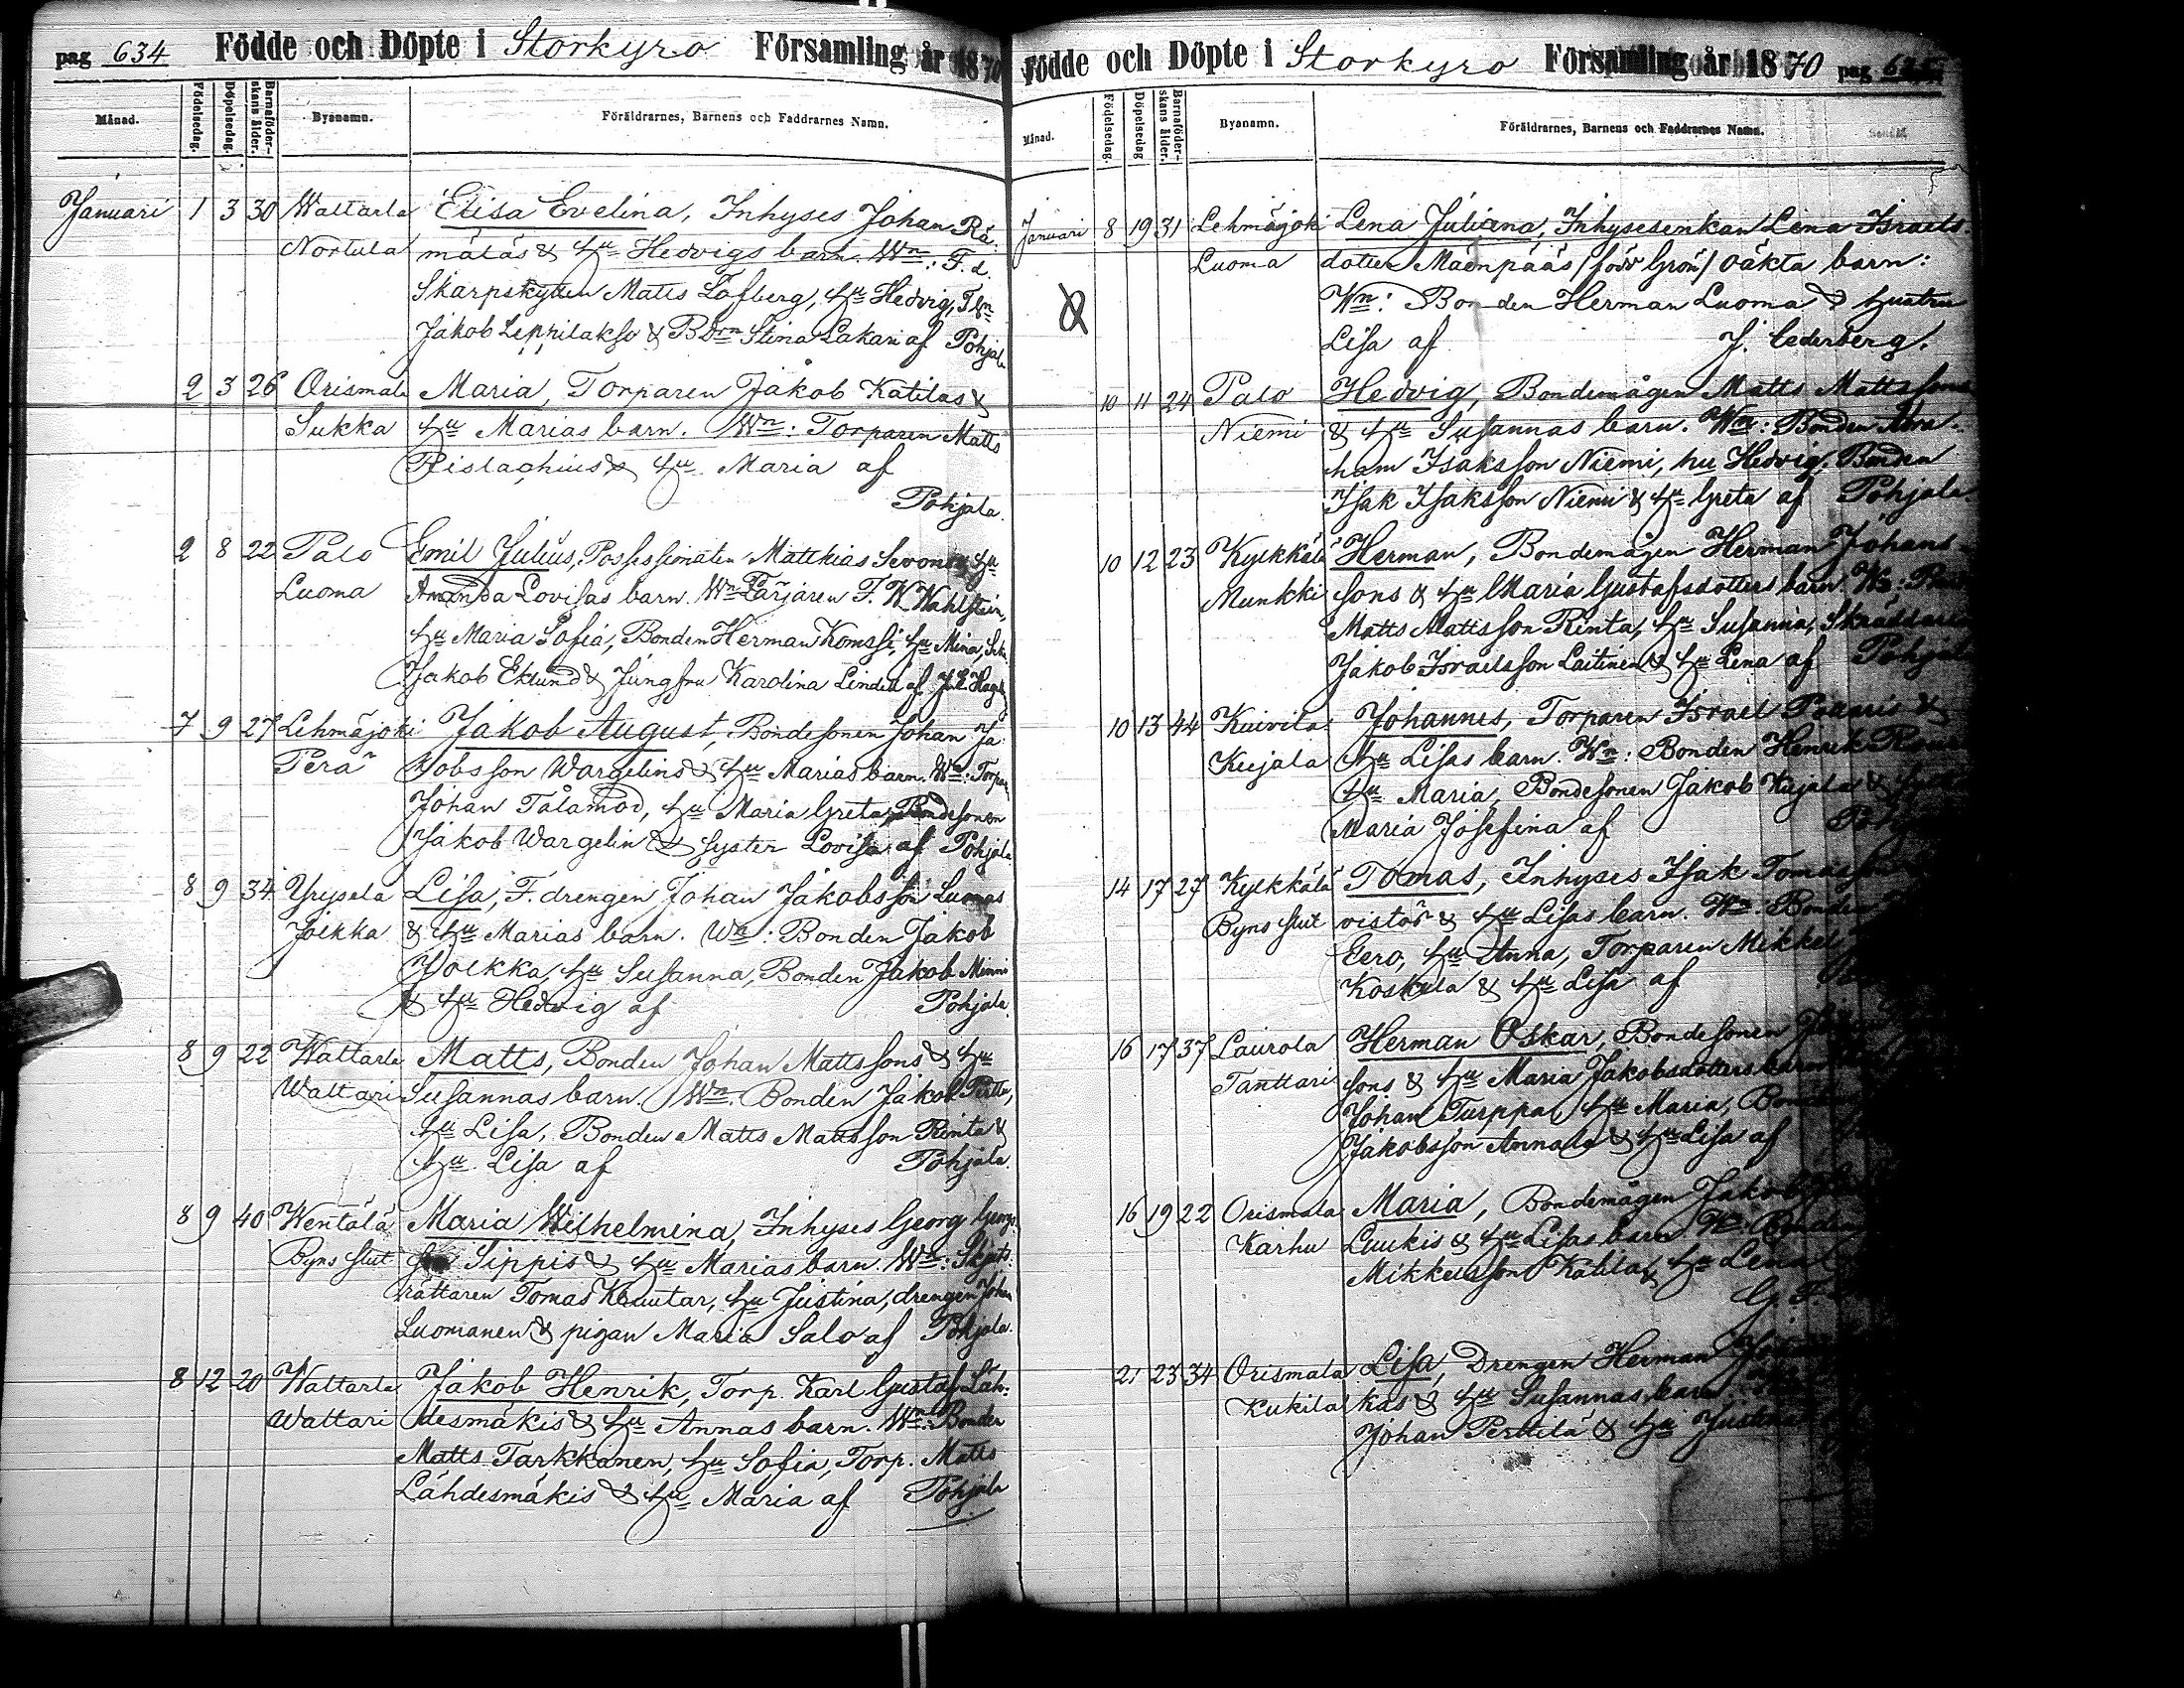 pag 634 Födde och Döpte i Storkyro Församling år 1870
Månad. Födelsedag. Döpelsedag. Barnaföderskans ålder. Byanamn. Föräldrarnes, Barnens och Faddrarnes Namn.
Januari 1 3 30 Wattarla Elisa Evelina, Inhyses Johan Rä-
Nortula mäläs & hu Hedvigs barn. Wn: F. d.
Skarpskytten Matts Löfberg, hu Hedvig,
Jakob Leppilakso & Stina Lakari af Pohjala
2 3 26 Orismala Maria, Torparen Jakob Katilas &
Sukka hu Marias barn. Wn: Torparen Matts
Rislachius & hu Maria af
Pohjala.
2 8 22 Palo Emil Julius, Possessionaten Matthias hu
Luoma Amanda Lovisas barn. Wn Färjaren F. W. Wahlstein,
hu Maria Sofia, Bonden Herman Komssi, hu Mina,
Jakob Eklund & Jungfru Karolina Lindell af
7 9 27 Lehmäjoki Jakob August, Bondesonen Johan Ja-
Perä kobsson Wargelins & hu Marias barn. Wn: Torpar
Johan Tålamod, hu Maria Greta, Bondesonen
Jakob Wargelin & syster Lovisa af Pohjala.
8 9 34 Yrysela Lisa, F. drengen Johan Jakobsson Luomas
Jolkka & hu Marias barn. Wn: Bonden Jakob
Jolkka, hu Susanna, Bonden Jakob Minni
& hu Hedvig af Pohjala.
8 9 22 Wattarla Matts, Bonden Johan Mattssons & hu
Wattari Susannas barn. Wn. Bonden Jakob Perttu,
hu Lisa, Bonden Matts Mattsson Rinta &
hu Lisa af Pohjala.
8 9 40 Wentälä Maria Wilhelmina, Inhyses Georg Georgs
Byns slut Sippis & hu Marias barn. Wn: Skjuts-
rättaren Tomas Knuutar, hu Justina, drengen Johan
Luomanen & pigan Maria Salo af Pohjala.
8 12 20 Wattarla Jakob Henrik, Torp. Karl Gustaf Läh-
Wattari desmäkis & hu Annas barn. Wn: Bonden
Matts Tarkkanen, hu Sofia, Torp. Matts
Lähdesmäkis & hu Maria af Pohjala
Födde och Döpte i Storkyro Församling år 1870 pag
Månad. Födelsedag. Döpelsedag Barnaföderskans ålder. Byanamn. Föräldrarnes, Barnens och Faddrarnes Namn.
Januari 8 19 31 Lehmäjoki Lena Juliana, Inhysesenkan Lena Israels-
Luoma dotter Mäenpääs /född Grön/ oäkta barn:
Wn: Bonden Herman Luoma & hustru
Lisa af J. Cederberg.
10 11 24 Palo Hedvig, Bondemågen Matts Mattssons
Niemi & hu Susannas barn. Wn: Bonden Abra-
ham Isaksson Niemi, hu Hedvig, Bonden
Isak Isaksson Niemi & hu Greta af Pohjala
10 12 23 Kylkkälä Herman, Bondemågen Herman Johans-
Munkki sons & hu Maria Gustafsdotters barn. Wn:
Matts Mattsson Rinta, hu Susanna, Skräddaren
Jakob Israelsson Laitinen & hu Lena af Pohjala
10 13 44 Kuivila Johannes, Torparen Israel &
Kujala hu Lisas barn. Wn: Bonden Henrik
hu Maria, Bondesonen Jakob Kujala &
Maria Josefina af
14 17 27 Kylkkälä Tomas, Inhyses Isak Tomasson
Byns slut vistös & hu Lisas barn. Wn. Bonden
Eero, hu Anna, Torparen Mikkel
Koskela & hu Lisa af
16 17 37 Laurola Herman Oskar, Bondesonen
Tanttari sons & hu Maria Jakobsdotters barn
Johan Turppa, hu Maria,
Jakobsson Annala & hu Lisa af
16 19 22 Orismala Maria, Bondemågen Jakob
Karhu Luukis & hu Lisas barn Wn. Bonden
Mikkelsson Katila, hu Lena
21 23 34 Orismala Lisa, Drengen Herman
Kukila kas & hu Susannas barn
Johan Perttilä & hu Justina